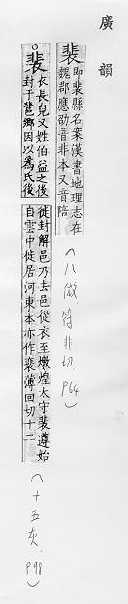 廣韻
裴 即裴縣名案漢書地理志在
魏郡應劭音非本又音陪
(八微,符非切 P64)
。裴 衣長皃又姓伯益之後
封于𨛬鄉因以為氏後
徙封解邑乃去邑從衣至燉煌太守裴遵始
自雲中徙居河東本亦作裵薄回切十二
(十五灰,P98)